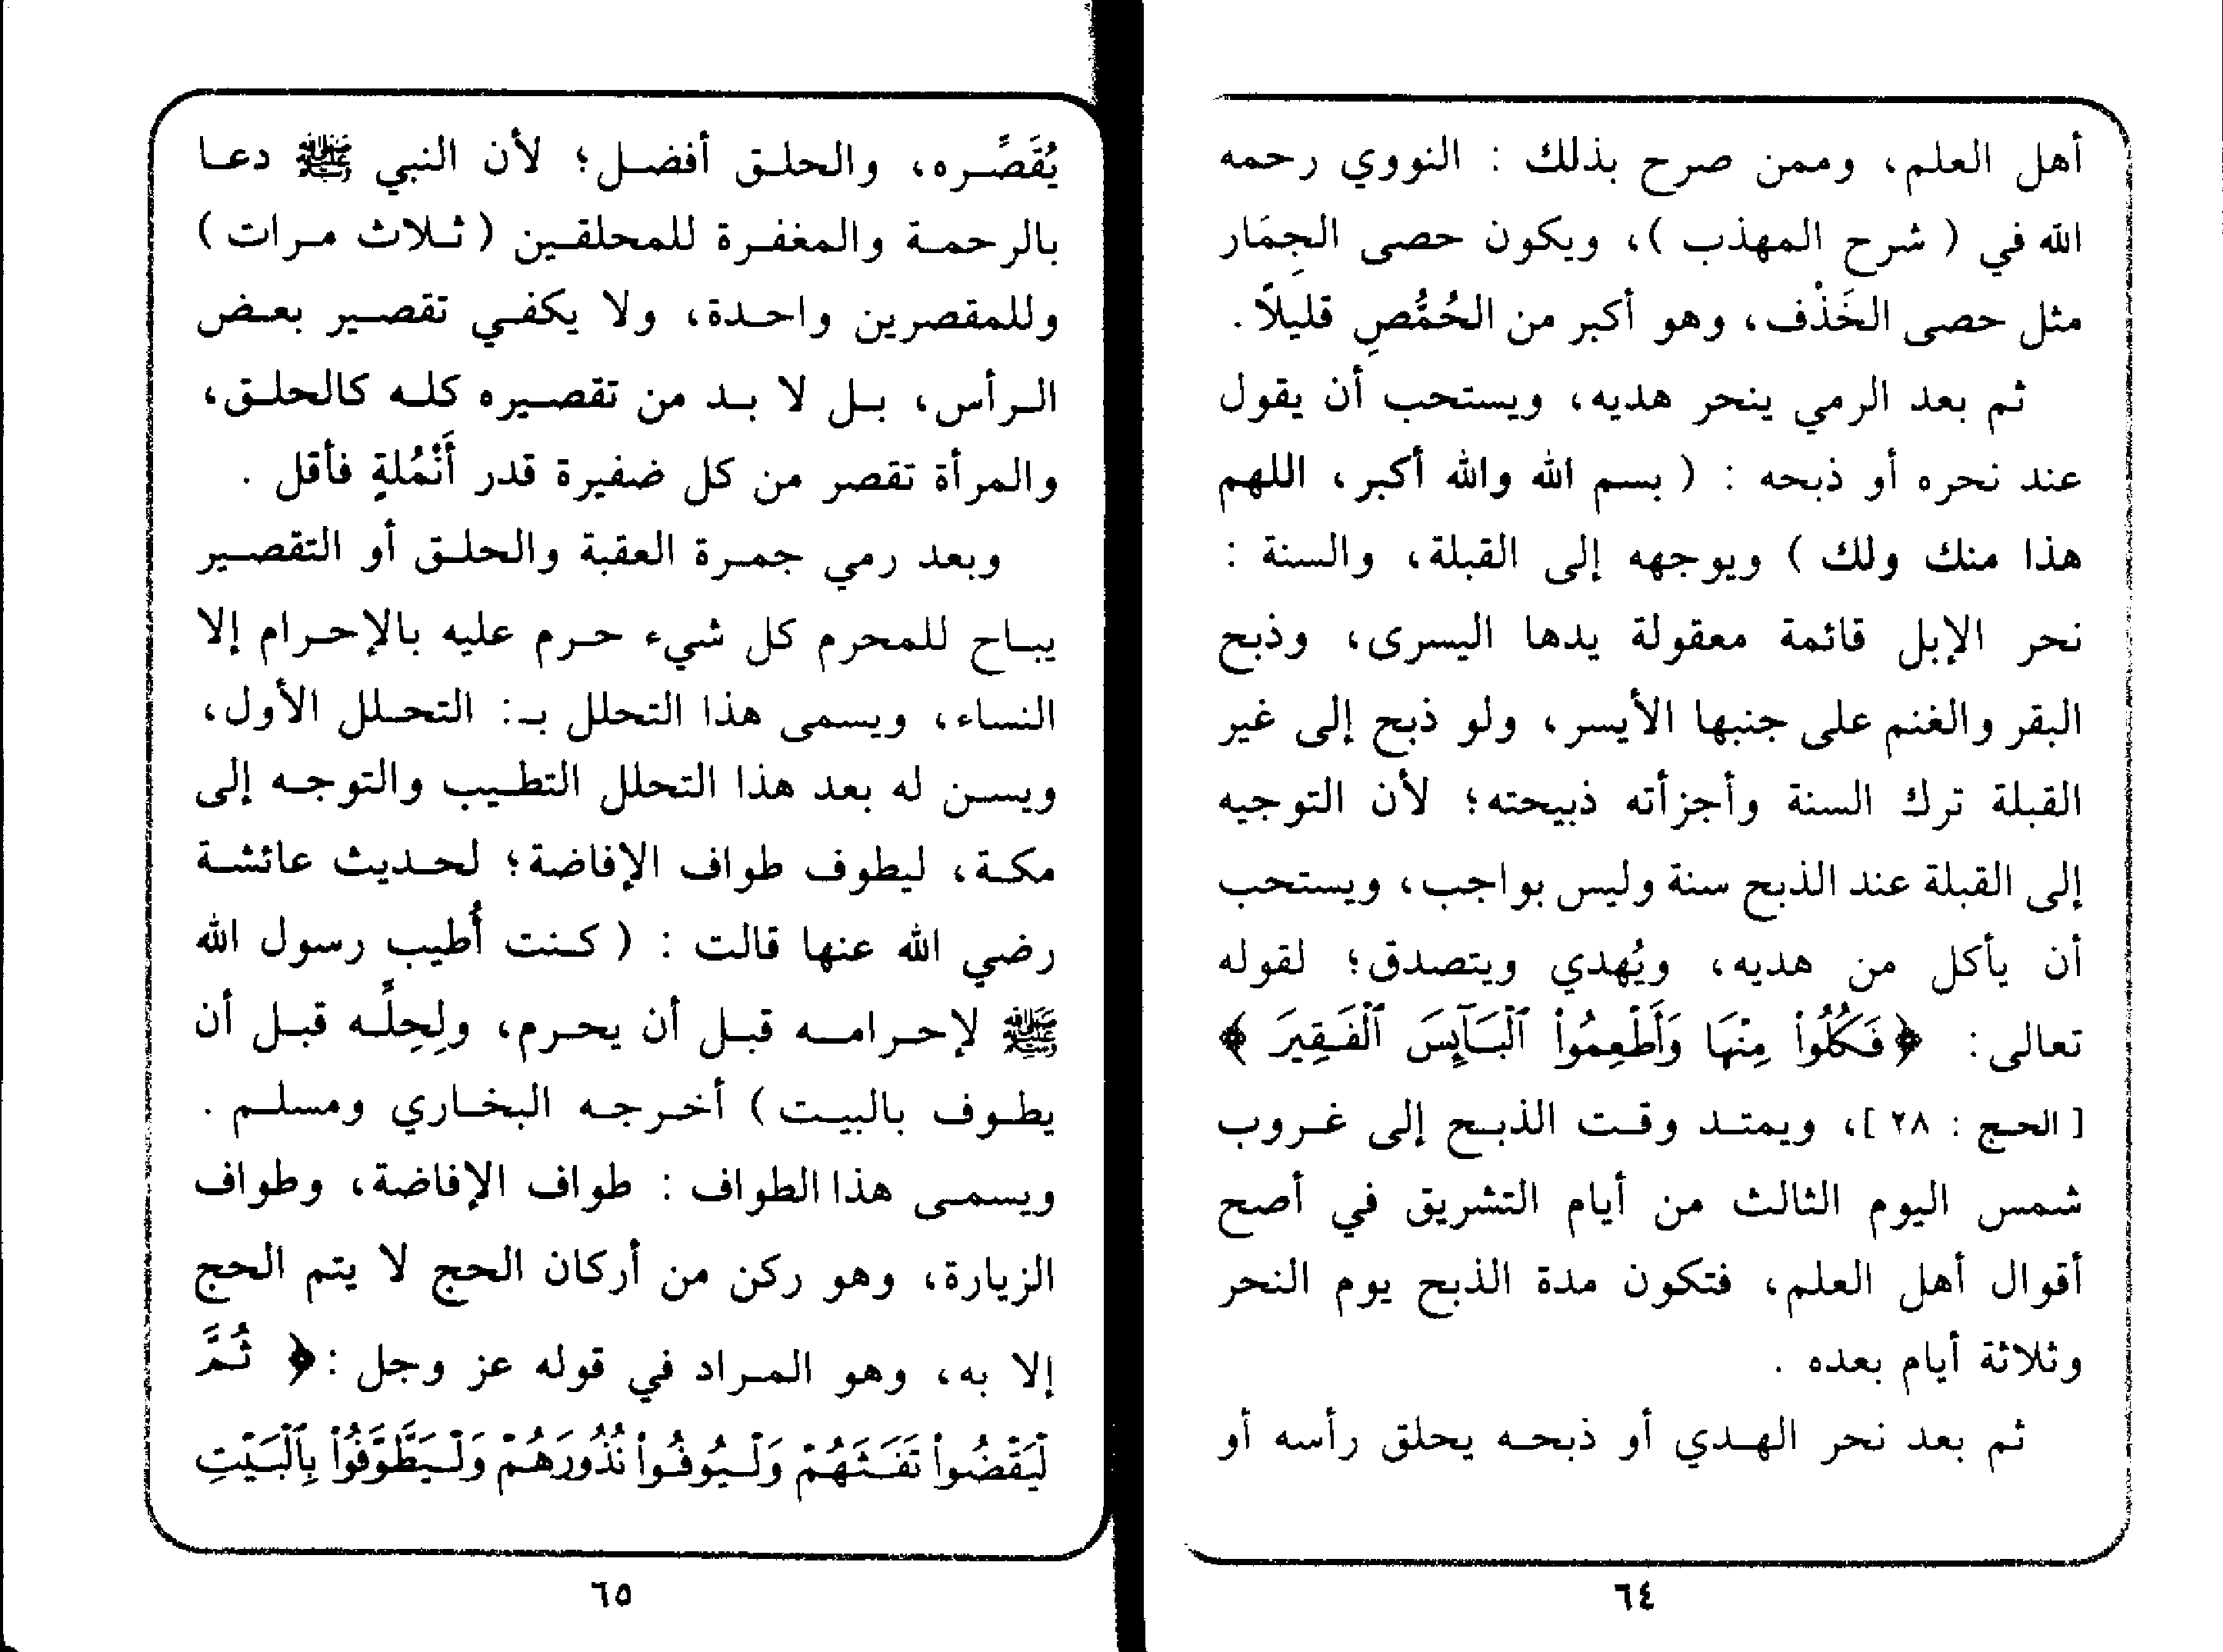 أهل العلم، وممن صرح بذلك : النووي رحمه
الله في ( شرح المهذب )، ويكون حصى الجِمَار
مثل حصى الخَذْف، وهو أكبر من الحُمُّصِ قليلاً .
ثم بعد الرمي ينحر هديه، ويستحب أن يقول
عند نحره أو ذبحه : ( بسم الله والله أكبر، اللهم
هذا منك ولك ) ويوجهه إلى القبلة، والسنة :
نحر الإبل قائمة معقولة يدها اليسرى، وذبح
البقر والغنم على جنبها الأيسر، ولو ذبح إلى غير
القبلة ترك السنة وأجزأته ذبيحته؛ لأن التوجيه
إلى القبلة عند الذبح سنة وليس بواجب، ويستحب
أن يأكل من هديه، ويُهدي ويتصدق؛ لقوله
تعالى: ﴿فَكُلُواْ مِنْهَا وَأَطْعِمُواْ ٱلْبَآئِسَ ٱلْفَقِيرَ ﴾
[ الحج : ٢٨ ]، ويمتد وقت الذبح إلى غروب
شمس اليوم الثالث من أيام التشريق في أصح
أقوال أهل العلم، فتكون مدة الذبح يوم النحر
وثلاثة أيام بعده .
ثم بعد نحر الهدي أو ذبحه يحلق رأسه أو
٦٤
يُقَصِّره، والحلق أفضل؛ لأن النبي ﷺ دعا
بالرحمة والمغفرة للمحلقين ( ثلاث مرات )
وللمقصرين واحدة، ولا يكفي تقصير بعض
الرأس، بل لا بد من تقصيره كله كالحلق،
والمرأة تقصر من كل ضفيرة قدر أَنْمُلةٍ فأقل .
وبعد رمي جمرة العقبة والحلق أو التقصير
يباح للمحرم كل شيء حرم عليه بالإحرام إلا
النساء، ويسمى هذا التحلل بـ: التحلل الأول،
ويسن له بعد هذا التحلل التطيب والتوجه إلى
مكة، ليطوف طواف الإفاضة؛ لحديث عائشة
رضي الله عنها قالت : ( كنت أُطيب رسول الله
ﷺ لإحرامه قبل أن يحرم، ولِحِلِّه قبل أن
يطوف بالبيت ) أخرجه البخاري ومسلم .
ويسمى هذا الطواف : طواف الإفاضة، وطواف
الزيارة، وهو ركن من أركان الحج لا يتم الحج
إلا به، وهو المراد في قوله عز وجل :﴿ ثُمَّ
لْيَقْضُواْ تَفَثَهُمْ وَلْيُوفُواْ نُذُورَهُمْ وَلْيَطَّوَّفُواْ بِٱلْبَيْتِ
٦٥